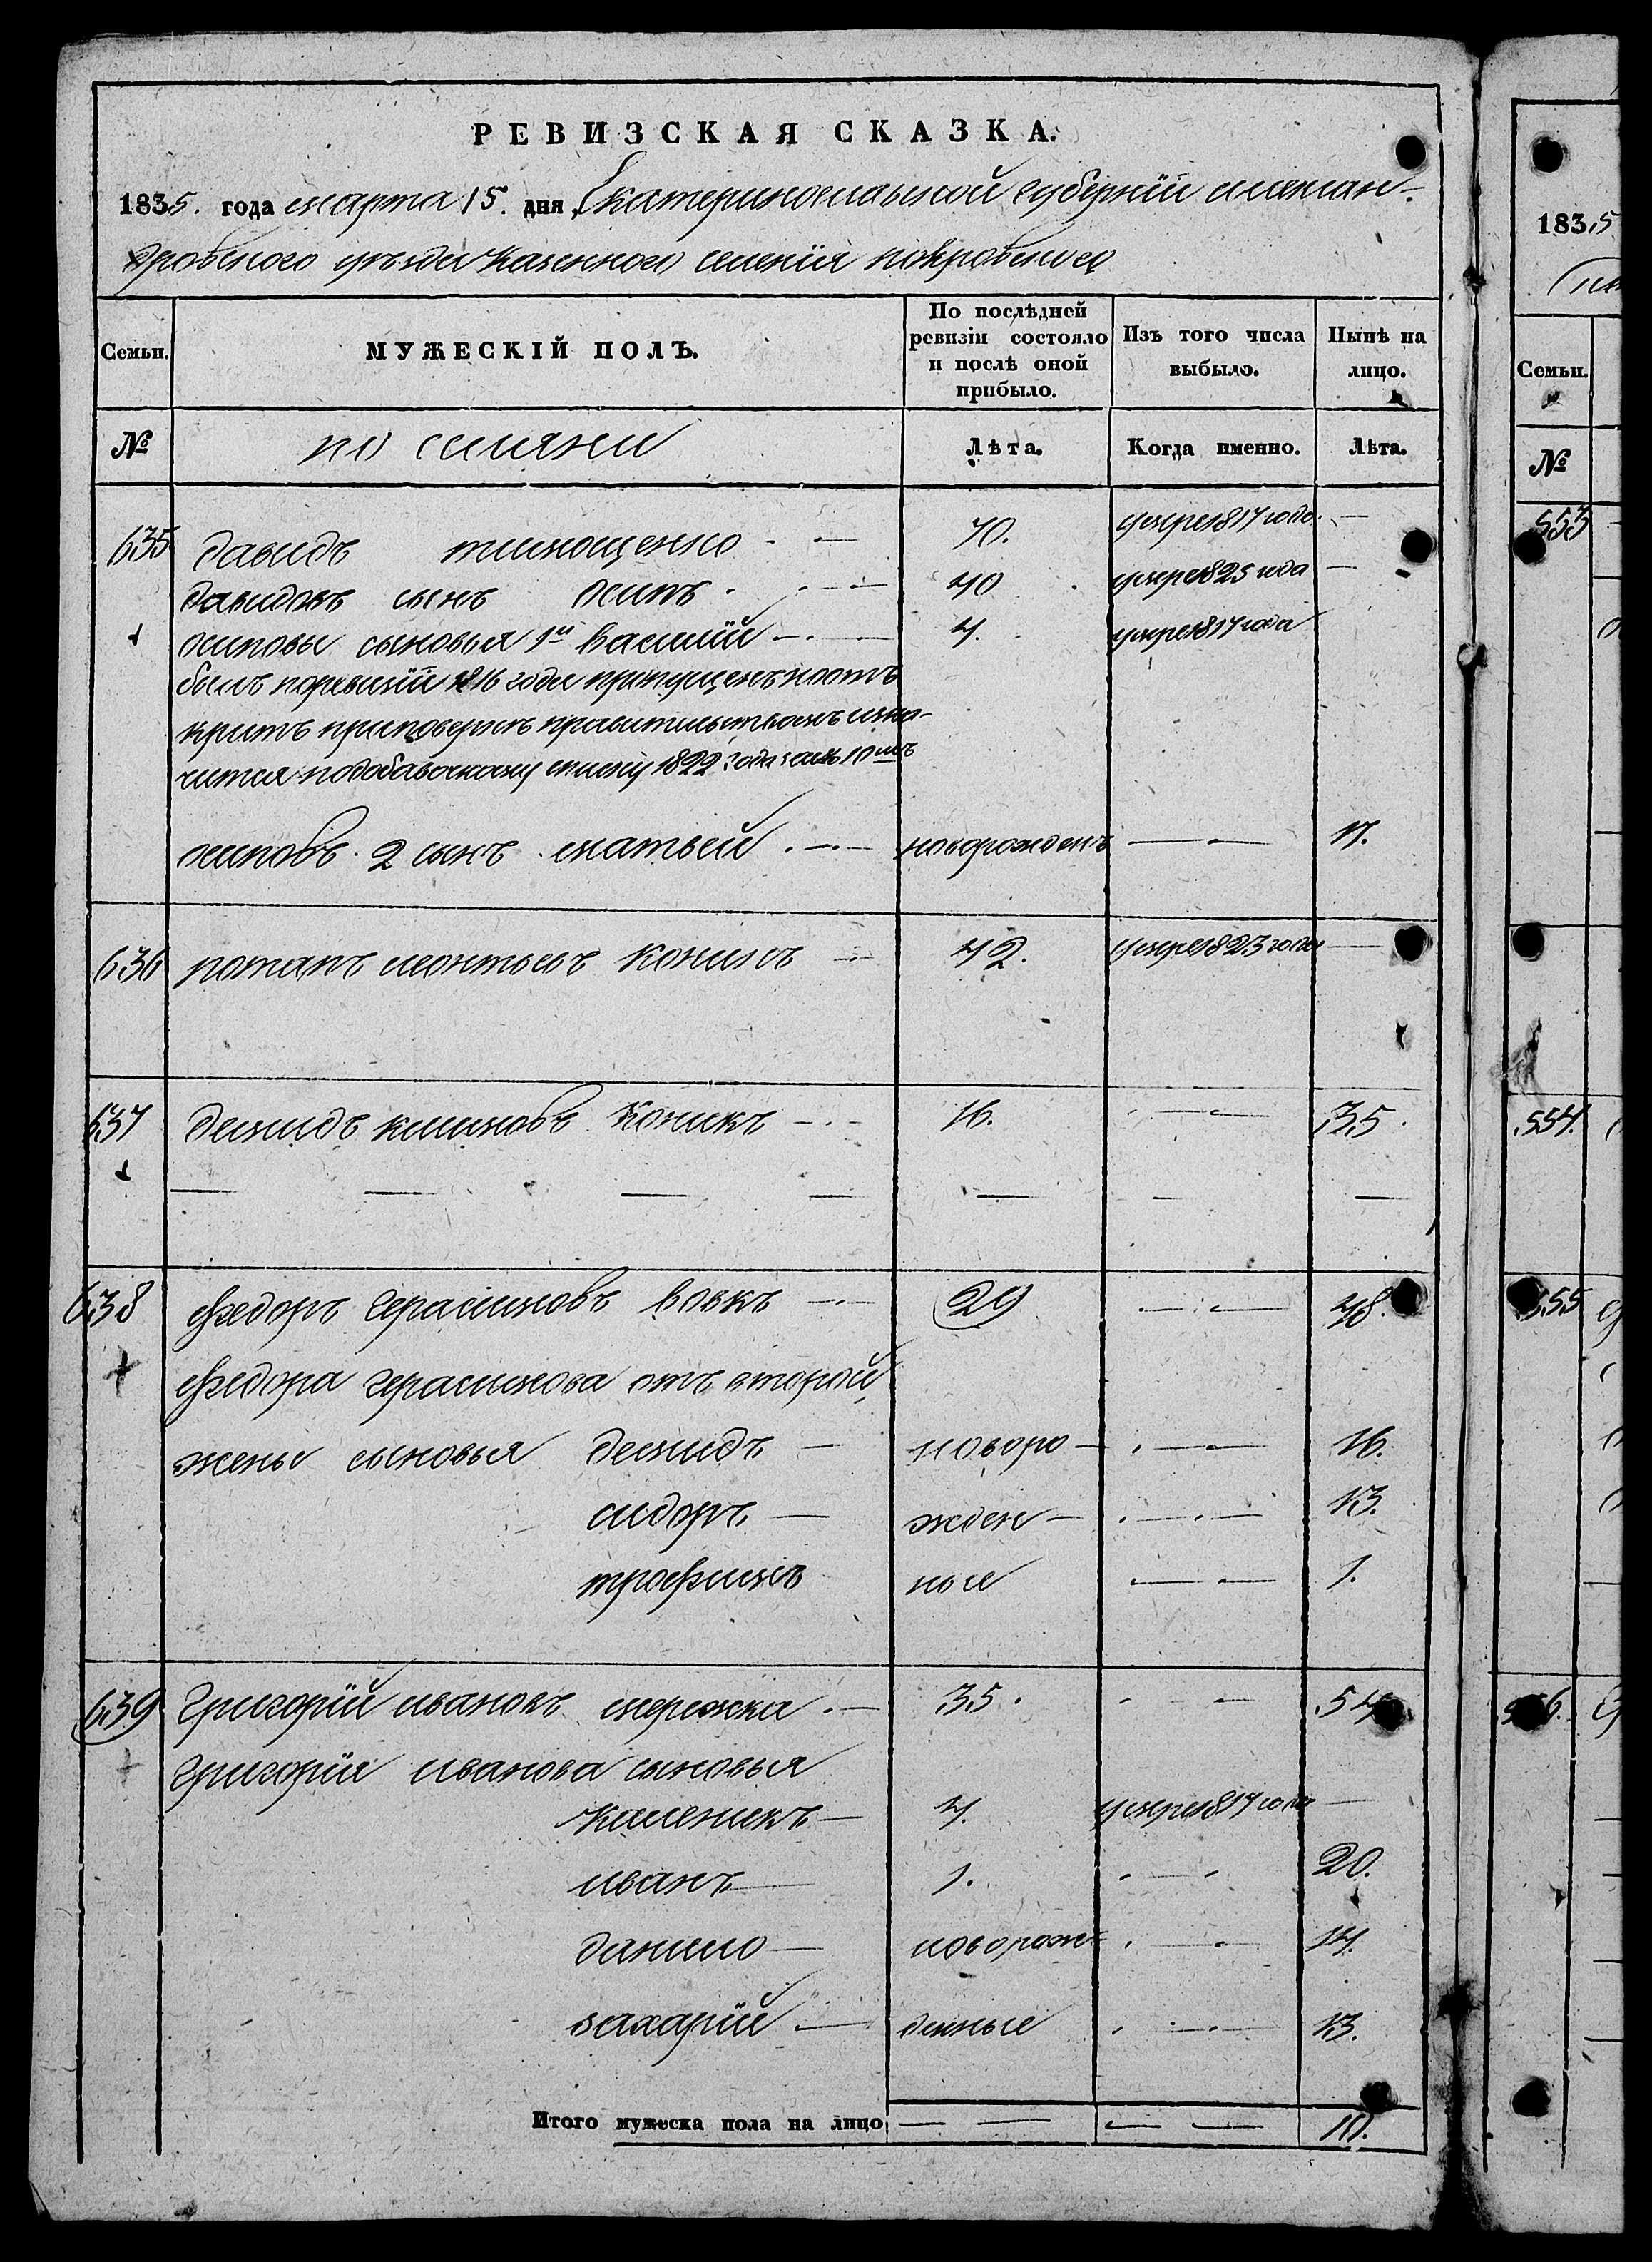 РЕВИЗСКАЯ СКАЗКА.
1835. года марта 15. дня, Екатеринославской губернiи алексан-
дровского уѣзда казенного селенiя покровского
Семьи. МУЖЕСКІЙ ПОЛЪ. По послѣдней ревизіи состояло и послѣ оной прибыло. Изъ того числа выбыло. Нынѣ на лицо.
№ Лѣта. Когда именно. Лѣта.
635 давидъ тимощенко 70. умере 1817 года
давидовъ сынъ осипъ 40 умере 1825 года
осиповы сыновья 1й василiй 4. умере 1817 года
былъ
1816 года
1822 года
осиповъ 2 сынъ матвей новорожденъ 17.
636 потапъ леонтьевъ коникъ 42. умере 1823 года
637 демидъ климовъ коникъ 16. 35.
638 федоръ герасимовъ вовкъ 29 48.
федора герасимова отъ второй
жены сыновья демидъ новоро- 16.
сидоръ жден- 13.
трофимъ ные 1.
639 григорiй ивановъ мережка 35. 54
григорiя иванова сыновья
каленикъ 4. умере 1817 года
иванъ 1. 20.
данило новорож- 14.
захарiй денные 13.
Итого мужеска пола на лицо 10.
183.5
Семьи.
№
553
554.
555